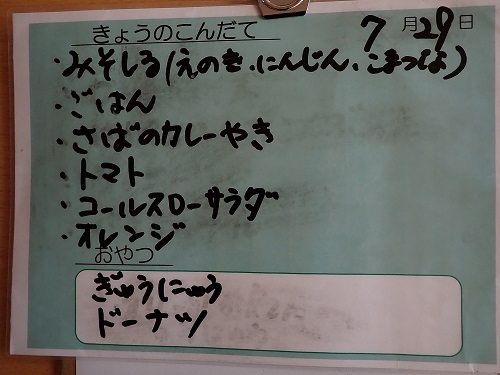 きょうのこんだて 7月29日
・みそしる(えのき、にんじん、こまつな)
・ごはん
・さばのカレーやき
・トマト
・コールスローサラダ
・オレンジ
おやつ
ぎゅうにゅう
ドーナツ